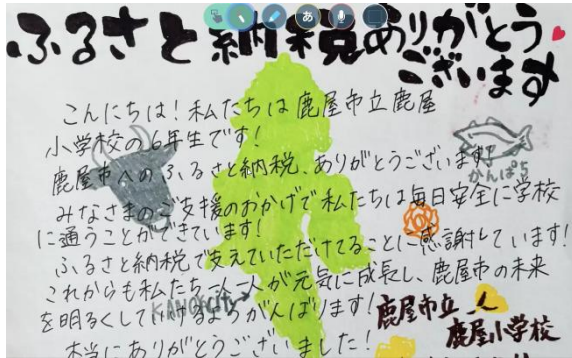 ふるさと納税ありがとう
ございます
こんにちは！私たちは鹿屋市立鹿屋
小学校の6年生です！
鹿屋市へのふるさと納税、ありがとうございます！
かんぱち
みなさまのご支援のおかげで私たちは毎日安全に学校
に通うことができています！
ふるさと納税で支えていただけてることに感謝しています！
これからも私たち一人一人が元気に成長し、鹿屋市の未来
を明るくしていけるようがんばります！
KANOYA city
鹿屋市立
鹿屋小学校
本当にありがとうございました！